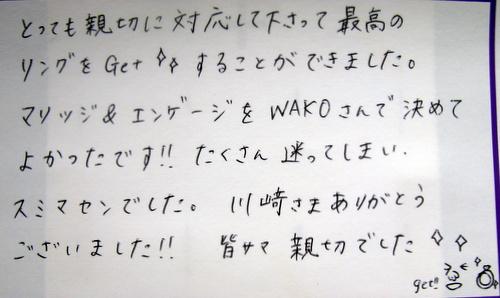 とっても親切に対応して下さって最高の
リングをGet✧✧することができました。
マリッジ&エンゲージをWAKOさんで決めて
よかったです!! たくさん迷ってしまい、
スミマセンでした。 川崎さまありがとう
ございました!! 皆サマ親切でした✧✧
get!!